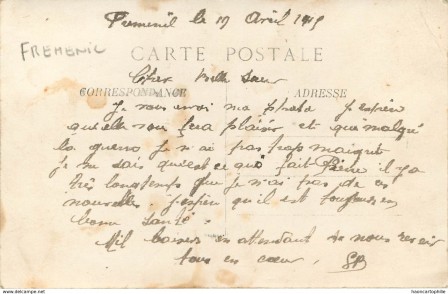 Fremenil le 19 Avril 1915
FREMENIL
CARTE POSTALE
Cher Belle Sœur
CORRESPONDANCE ADRESSE
Je vous envoi ma photo J'espère
qu'elle vous fera plaisir et que malgré
la guerre je n'ai pas trop maigrit
Je ne sais qu'est ce que fait Pierre il y a
très longtemps que je n'ai pas de ces
nouvelles J'espère qu'il est toujours en
bonne santé
Mil baisers en attendant de nous revoir
tous en cœur